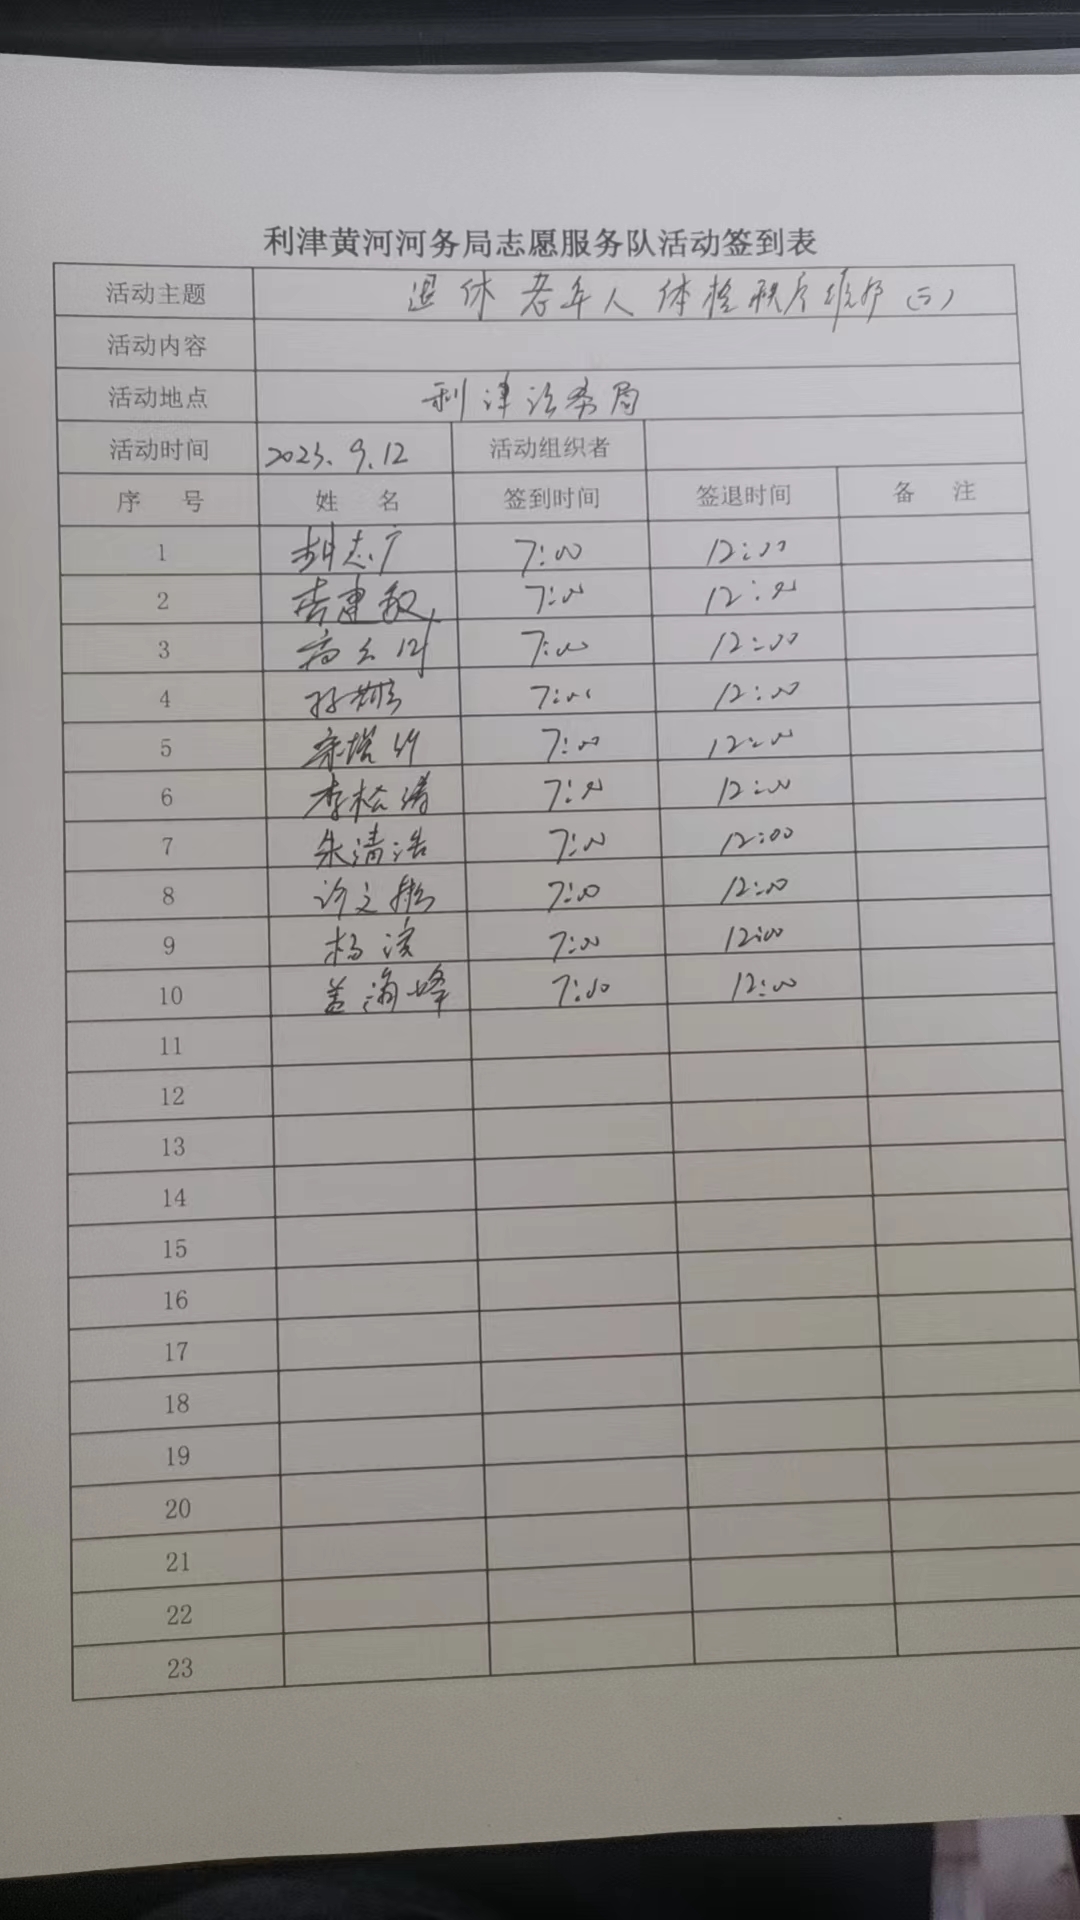 利津黄河河务局志愿服务队活动签到表
活动主题 退休老年人体检秩序维护(二)
活动内容
活动地点 利津河务局
活动时间 2023.9.12 活动组织者
序 号 姓 名 签到时间 签退时间 备 注
1 胡志广 7:00 12:00
2 李建敏 7:00 12:00
3 7:00 12:00
4 孙 7:00 12:00
5 7:00 12:00
6 李松涛 7:00 12:00
7 朱清浩 7:00 12:00
8 许文彬 7:00 12:00
9 杨滨 7:00 12:00
10 盖海峰 7:00 12:00
11
12
13
14
15
16
17
18
19
20
21
22
23